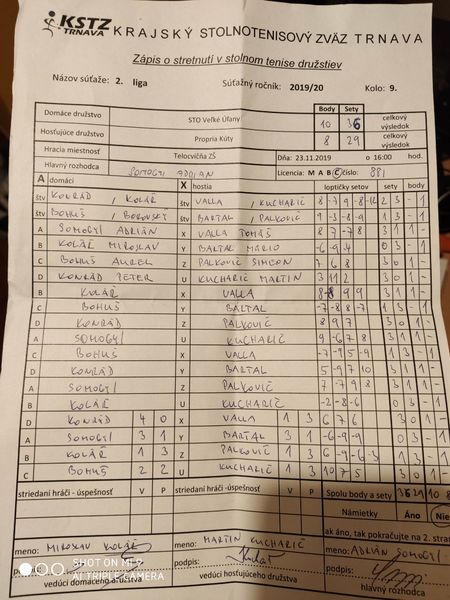 KSTZ TRNAVA KRAJSKÝ STOLNOTENISOVÝ ZVÄZ TRNAVA
Zápis o stretnutí v stolnom tenise družstiev
Názov súťaže: 2. liga Súťažný ročník: 2019/20 Kolo: 9.
Body Sety
Domáce družstvo STO Veľké Úľany 10 36 celkový výsledok
Hosťujúce družstvo Propria Kúty 8 29 celkový výsledok
Hracia miestnosť Telocvičňa ZŠ Dňa: 23.11.2019 o 16:00 hod.
Hlavný rozhodca SOMOGYI ADRIAN Licencia: M A B C číslo: 881
A domáci X hostia loptičky setov sety body
štv KONRÁD, KOLÁR štv VALLA, KUCHARIČ 8 -7 9 -8 -12 2 3 - 1
štv BOHUŠ, BOROVSKÝ štv BARTAL, PALKOVIČ 9 -3 -8 -9 1 3 - 1
A SOMOGYI ADRIÁN X VALLA TOMÁŠ 8 7 -7 8 3 1 1 -
B KOLÁŘ MIROSLAV Y BARTAL MARIO -6 -9 -4 0 3 - 1
C BOHUŠ AUREL Z PALKOVIČ SIMEON 7 6 8 3 0 1 -
D KONRÁD PETER U KUCHARIČ MARTIN 3 11 2 3 0 1 -
B KOLÁŘ X VALLA 8 -8 9 9 3 1 1 -
C BOHUŠ Y BARTAL -7 -8 8 -7 1 3 - 1
D KONRÁD Z PALKOVIČ 8 9 7 3 0 1 -
A SOMOGYI U KUCHARIČ 9 -6 7 8 3 1 1 -
C BOHUŠ X VALLA -7 -9 5 -9 1 3 - 1
D KONRÁD Y BARTAL 5 -9 7 10 3 1 1 -
A SOMOGYI Z PALKOVIČ 7 -7 9 8 3 1 1 -
B KOLÁŘ U KUCHARIČ -2 -8 -6 0 3 - 1
D KONRÁD 4 0 X VALLA 1 3 6 7 6 3 0 1 -
A SOMOGYI 3 1 Y BARTAL 3 1 -6 -9 -9 0 3 - 1
B KOLÁŘ 1 3 Z PALKOVIČ 1 3 6 -9 -6 -3 1 3 - 1
C BOHUŠ 2 2 U KUCHARIČ 1 3 10 7 5 3 0 1 -
striedaní hráči - úspešnosť V P striedaní hráči -úspešnosť V P Spolu body a sety 36 29 10 8
Námietky Áno Nie
ak áno, tak pokračujte na 2. stran
meno: MIROSLAV KOLÁŘ meno: MARTIN KUCHARIČ meno: ADRIÁN SOMOGYI
podpis: podpis:
vedúci domáceho družstva vedúci hosťujúceho družstva hlavný rozhodca
SHOT ON MI 9
AI TRIPLE CAMERA